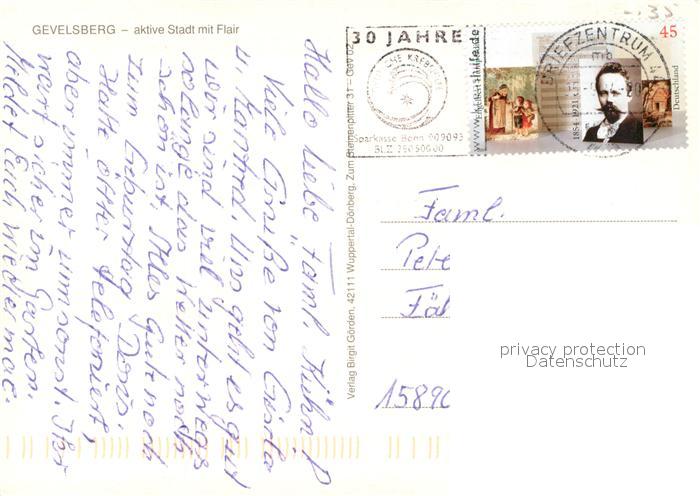 GEVELSBERG – aktive Stadt mit Flair
Hallo liebe Faml. Kühn!
Viele Grüße von Gisela
u. Konrad. Uns geht es gut
wir sind viel unterwegs
solange das Wetter noch
schön ist. Alles Gute noch
zum Geburtstag Doris.
Hatte öfter telefoniert,
aber immer umsonst. Ihr
wart sicher im Garten.
Meldet Euch wieder mal.
Verlag Birgit Görden, 42111 Wuppertal-Dönberg, Zum Steinernpitter 31 – Gev 02
30 JAHRE
DEUTSCHE KREBSHILFE
Sparkasse Bonn 909093
BLZ 38050000
www.krebshilfe.de
BRIEFZENTRUM
mb
45
Engelbert Humperdinck
1854-1921
Deutschland
-.35
Faml.
Pete
Fäl
15890
privacy protection
Datenschutz